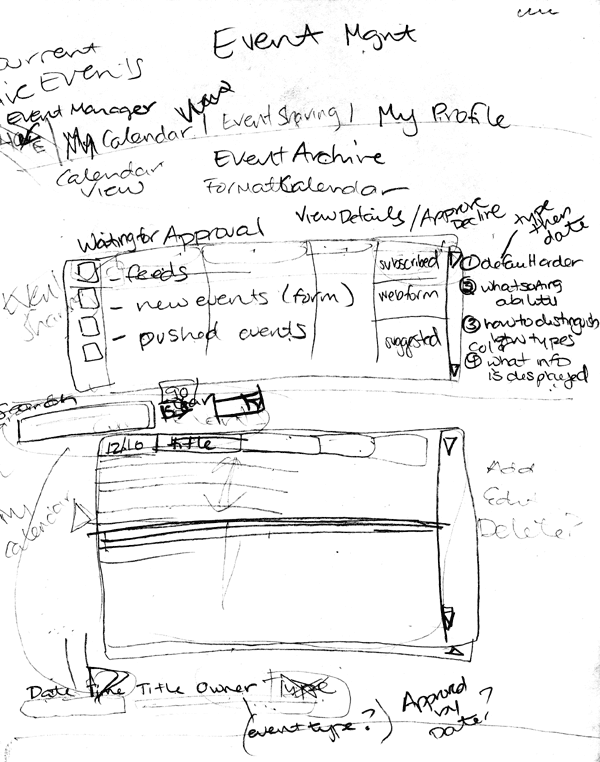 Event Mgnt
Current
ive Events
Event Manager
My Calendar | Event Sharing | My Profile
Event Archive
Calendar View
Format Calendar
View Details / Approve Decline
type then date
Waiting for Approval
- feeds
- new events (form)
- pushed events
subscribed
webform
suggested
① default order
② whats sorting ability
③ how to distinguish types
④ what info is displayed
Search
go
12/10 title
My Calendar
Add
Edit
Delete?
Date Time Title Owner Type
(event type?)
Approved by Date?